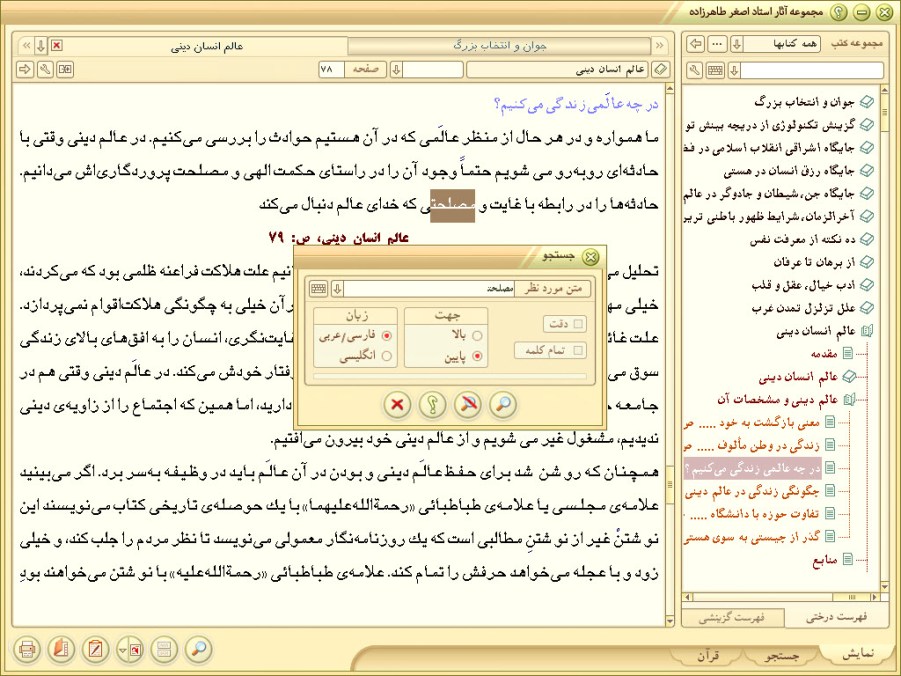 مجموعه آثار استاد اصغر طاهرزاده
مجموعه کتب
همه کتابها
جوان و انتخاب بزرگ
گزینش تکنولوژی از دریچه بینش تو
جایگاه اشراقی انقلاب اسلامی در فض
جایگاه رزق انسان در هستی
جایگاه جن، شیطان و جادوگر در عالم
آخرالزمان، شرایط ظهور باطنی ترین
ده نکته از معرفت نفس
از برهان تا عرفان
ادب خیال، عقل و قلب
علل تزلزل تمدن غرب
عالم انسان دینی
مقدمه
عالم انسان دینی
عالم دینی و مشخصات آن
معنی بازگشت به خود ..... ص
زندگی در وطن مألوف ..... ص
در چه عالمی زندگی می‌کنیم ؟
چگونگی زندگی در عالم دینی
تفاوت حوزه با دانشگاه ..... -
گذر از چیستی به سوی هستی
منابع
فهرست درختی
فهرست گزینشی
جوان و انتخاب بزرگ
عالم انسان دینی
عالم انسان دینی
صفحه
۷۸
در چه عالَمی زندگی می‌کنیم؟
ما همواره و در هر حال از منظر عالَمی که در آن هستیم حوادث را بررسی می‌کنیم. در عالم دینی وقتی با
حادثه‌ای روبه‌رو می شویم حتماً وجود آن را در راستای حکمت الهی و مصلحت پروردگاری‌اش می‌دانیم.
حادثه‌ها را در رابطه با غایت و مصلحتی که خدای عالم دنبال می‌کند
عالم انسان دینی، ص: ۷۹
تحلیل می
انیم علت هلاکت فراعنه ظلمی بود که می‌کردند،
خیلی مه
رآن خیلی به چگونگی هلاکت‌اقوام نمی‌پردازد.
علت غائ
غایت‌نگری، انسان را به افق‌های بالای زندگی
سوق می
رفتار خودش می‌کند. در عالَم دینی وقتی هم در
جامعه ح
دارید، اما همین که اجتماع را از زاویه‌ی دینی
ندیدیم، مشغول غیر می شویم و از عالم دینی خود بیرون می‌افتیم.
همچنان که روشن شد برای حفظ عالَم دینی و بودن در آن عالَم باید در وظیفه به‌سر برد. اگر می‌بینید
علامه‌ی مجلسی یا علامه‌ی طباطبائی «رحمةالله‌علیهما» با یك حوصله‌ی تاریخی کتاب می‌نویسند این
نوشتنْ غیر از نوشتنِ مطالبی است که یك روزنامه‌نگار معمولی می‌نویسد تا نظر مردم را جلب کند، و خیلی
زود و با عجله می‌خواهد حرفش را تمام کند. علامه‌ی طباطبائی «رحمةالله‌علیه» با نوشتن می‌خواهند بودِ
جستجو
متن مورد نظر
مصلحت
دقت
تمام کلمه
جهت
بالا
پایین
زبان
فارسی/عربی
انگلیسی
نمایش
جستجو
قرآن